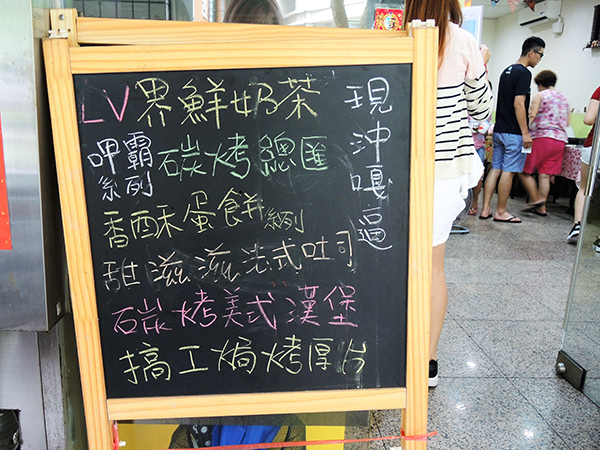 LV界鮮奶茶
呷霸系列
碳烤總匯
香酥蛋餅系列
甜滋滋法式吐司
碳烤美式漢堡
搞工焗烤厚片
現沖嘎逼